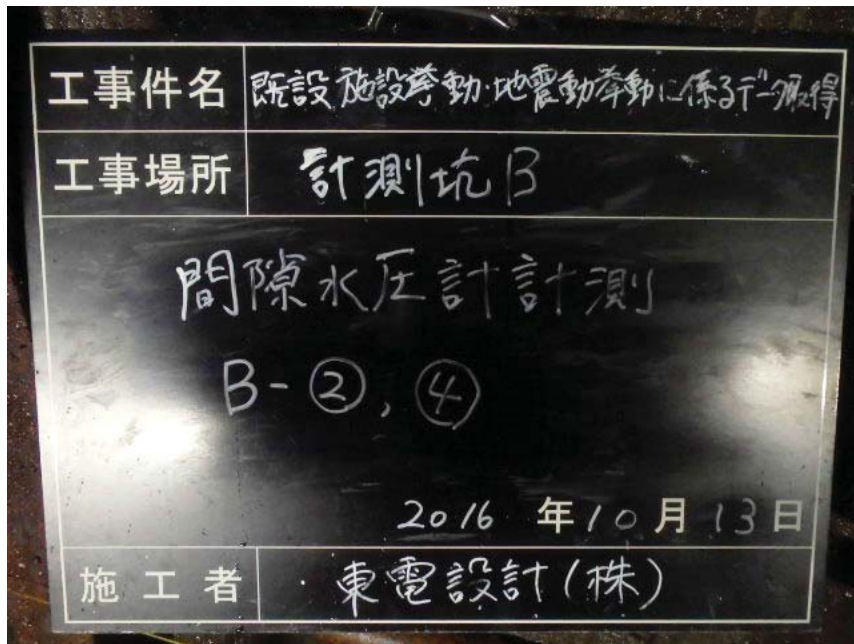 工事件名 既設施設挙動・地震動挙動に係るデータ取得
工事場所 計測坑B
間隙水圧計計測
B-②, ④
2016 年10月13日
施工者 東電設計(株)